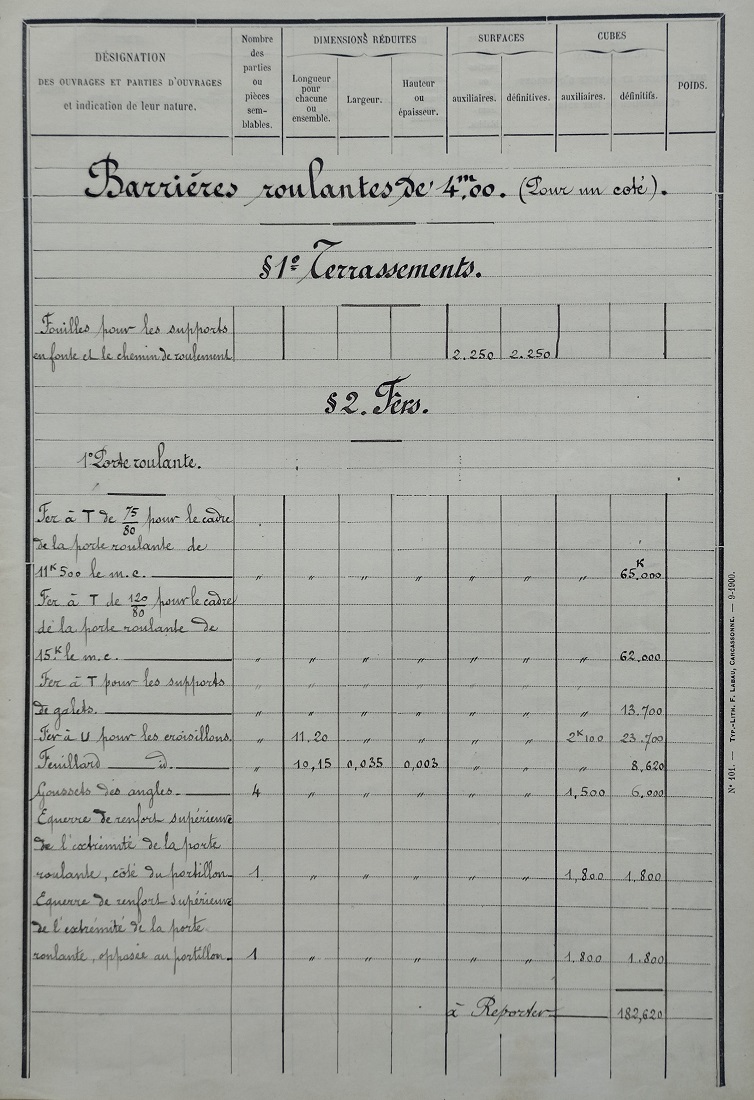 DÉSIGNATION
DES OUVRAGES ET PARTIES D'OUVRAGES
et indication de leur nature.
Nombre
des
parties
ou
pièces
sem-
blables.
DIMENSIONS RÉDUITES
Longueur
pour
chacune
ou
ensemble.
Largeur.
Hauteur
ou
épaisseur.
SURFACES
auxiliaires.
définitives.
CUBES
auxiliaires.
définitifs.
POIDS.
Barriéres roulantes de 4m,00. (Pour un coté).
§1º Terrassements.
Fouilles pour les supports
en fonte et le chemin de roulement 2.250 2.250
§2. Fers.
1º Porte roulante.
Fer à T de 75/80 pour le cadre
de la porte roulante de
11K500 le m.c. „ „ „ „ „ „ „ 65K.000
Fer à T de 120/80 pour le cadre
de la porte roulante de
15K. le m.c. „ „ „ „ „ „ „ 62.000
Fer à T pour les supports „ „ „ „ „ „ „
de galets. „ „ „ „ „ „ „ 13.700
Fer à U pour les croisillons. „ 11.20 „ „ „ „ 2K100 23.700
Feuillard id. „ 10,15 0,035 0,003 „ „ „ 8,620
Goussets des angles. 4 „ „ „ „ „ 1,500 6,000
Equerre de renfort supérieure
de l'extrémité de la porte
roulante, côté du portillon 1 „ „ „ „ „ 1,800 1,800
Equerre de renfort supérieure
de l'extrémité de la porte
roulante, opposée au portillon. 1 „ „ „ „ „ 1.800 1.800
à Reporter 182,620
Nº 101. — TYP.-LITH. F. LABAU, CARCASSONNE. — 9-1900.